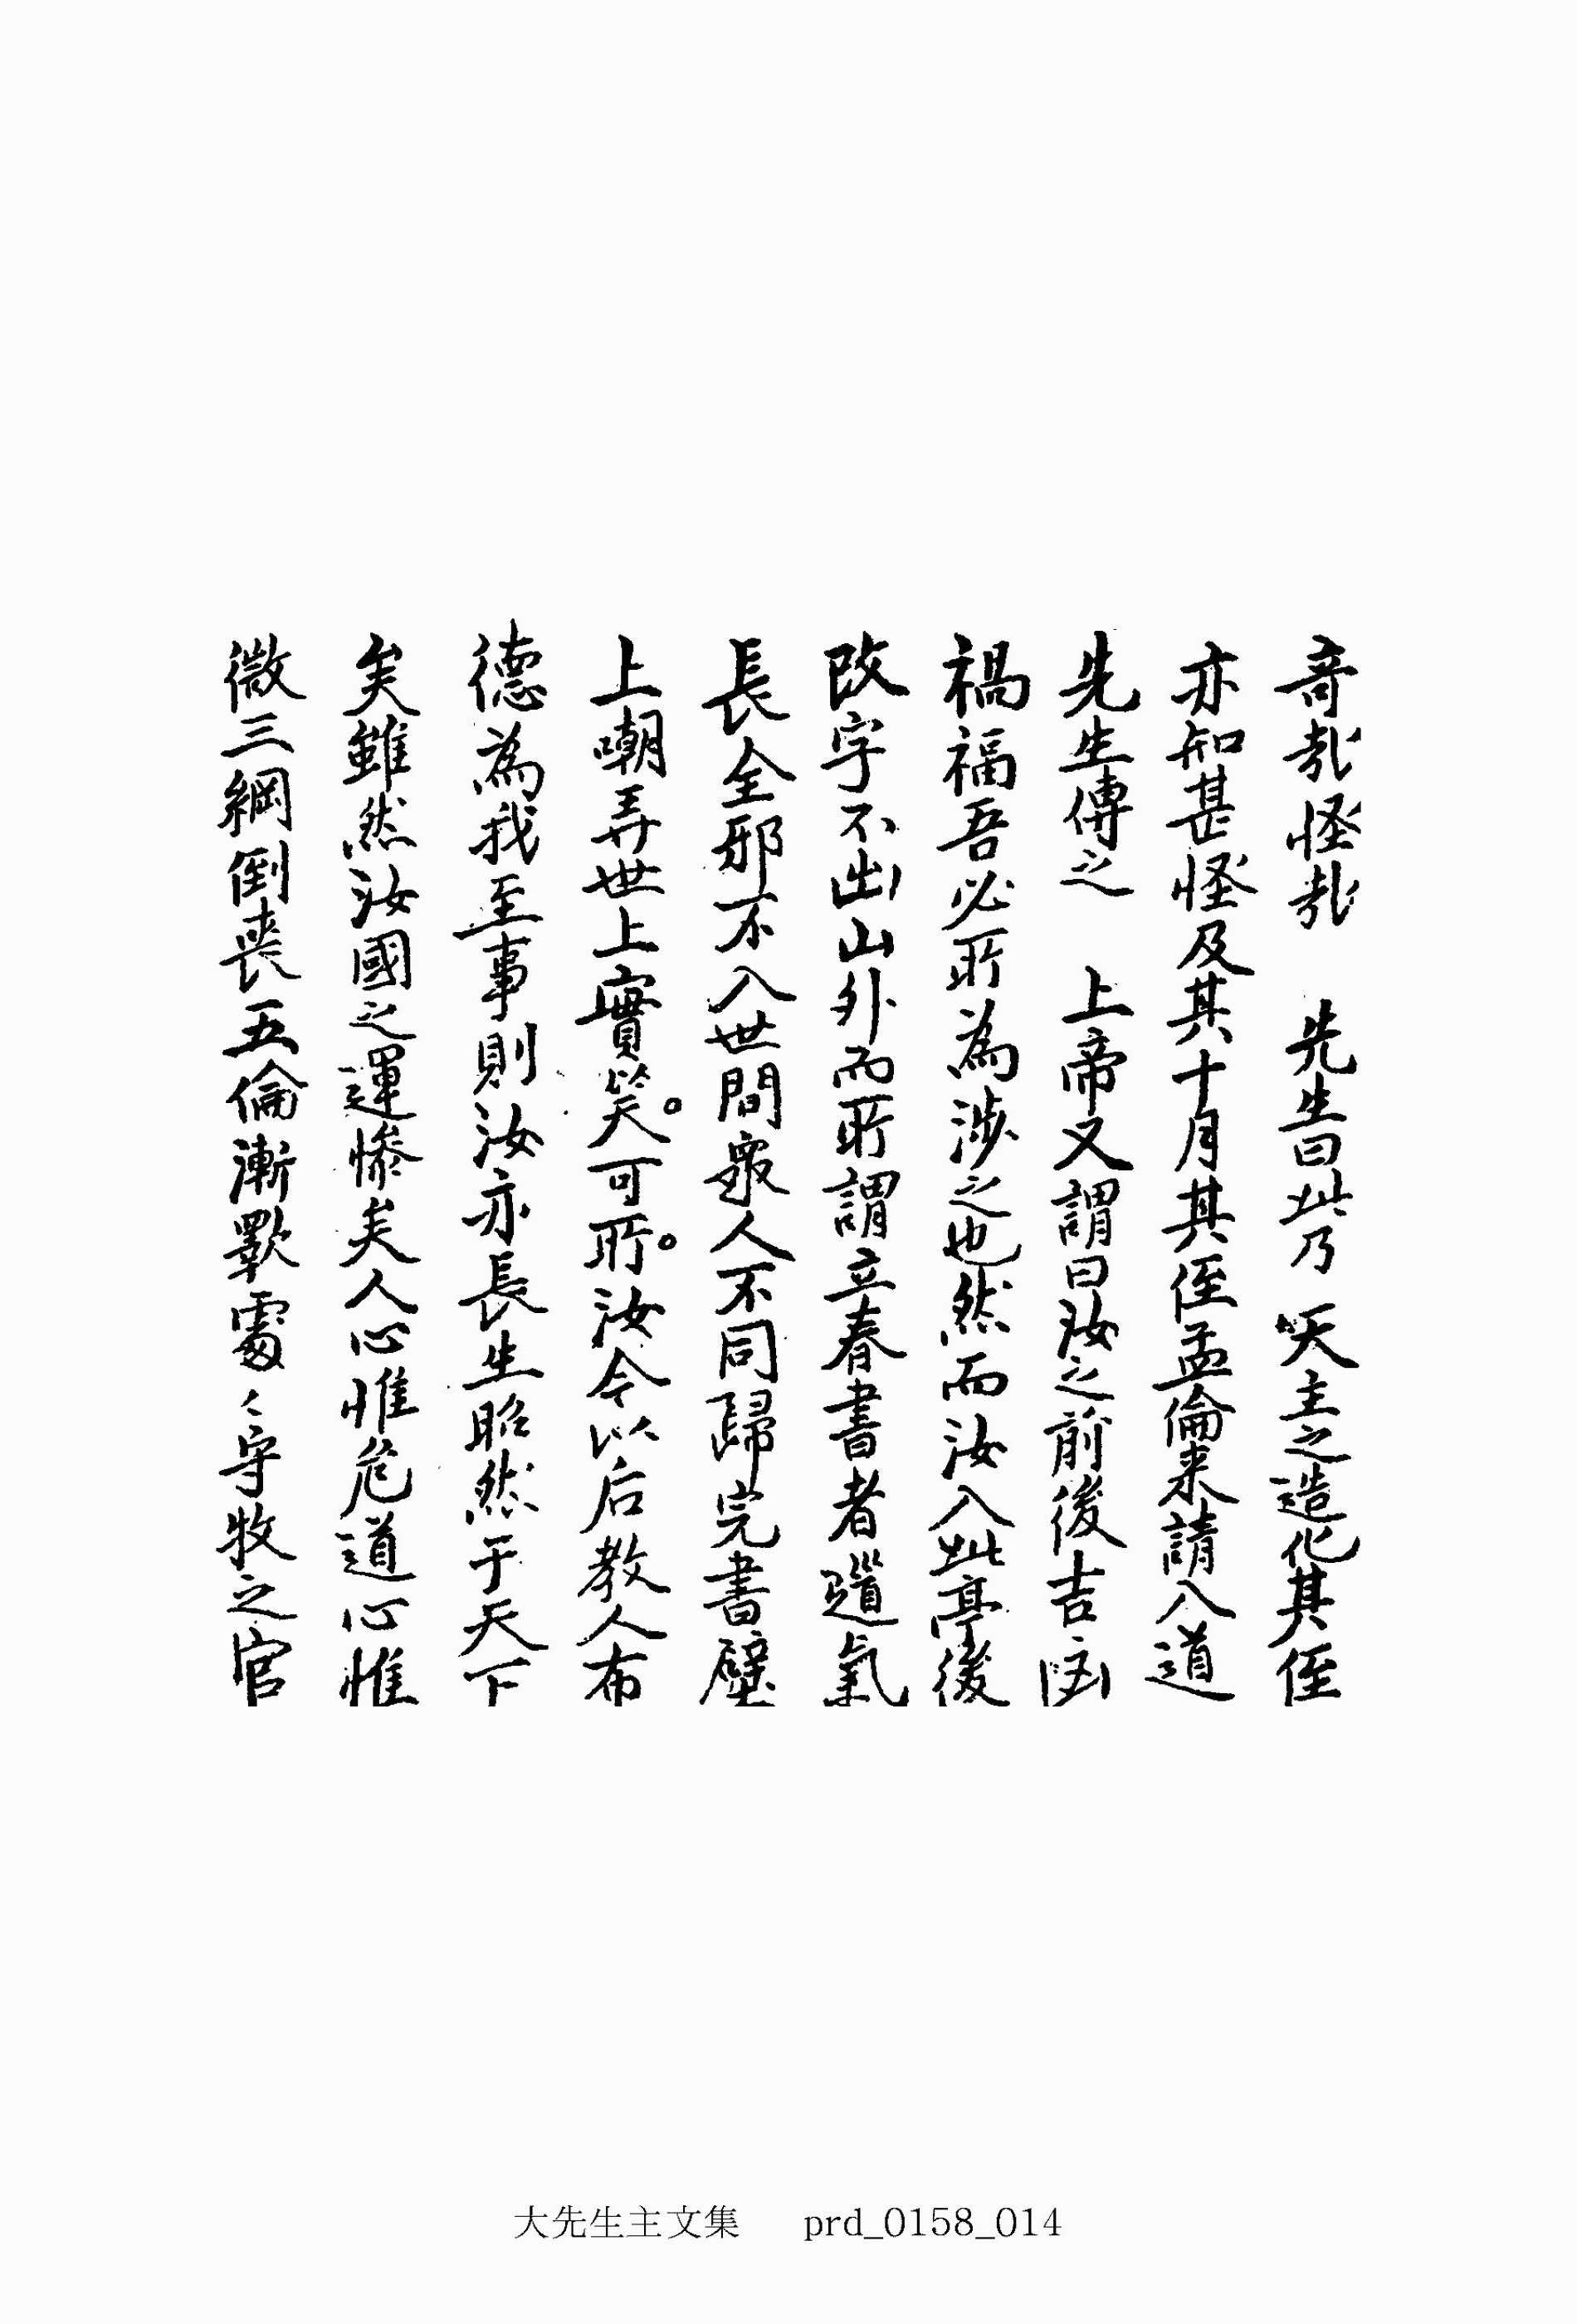 奇哉怪哉 先生曰此乃 天主之造化其侄
亦知甚怪及其十月其侄孟倫来請入道
先生傳之 上帝又謂曰汝之前後吉凶
禍福吾必所為涉之也然而汝入此亭後
改字不出山外而所謂立春書者道氣
長全邪不入世間衆人不同歸完書壁
上嘲弄世上實笑。可所。汝今以后教人布
德為我至事則汝亦長生昭然于天下
矣雖然汝國之運慘矣人心惟危道心惟
微三綱倒喪五倫漸斁處〻守牧之官
大先生主文集 prd_0158_014